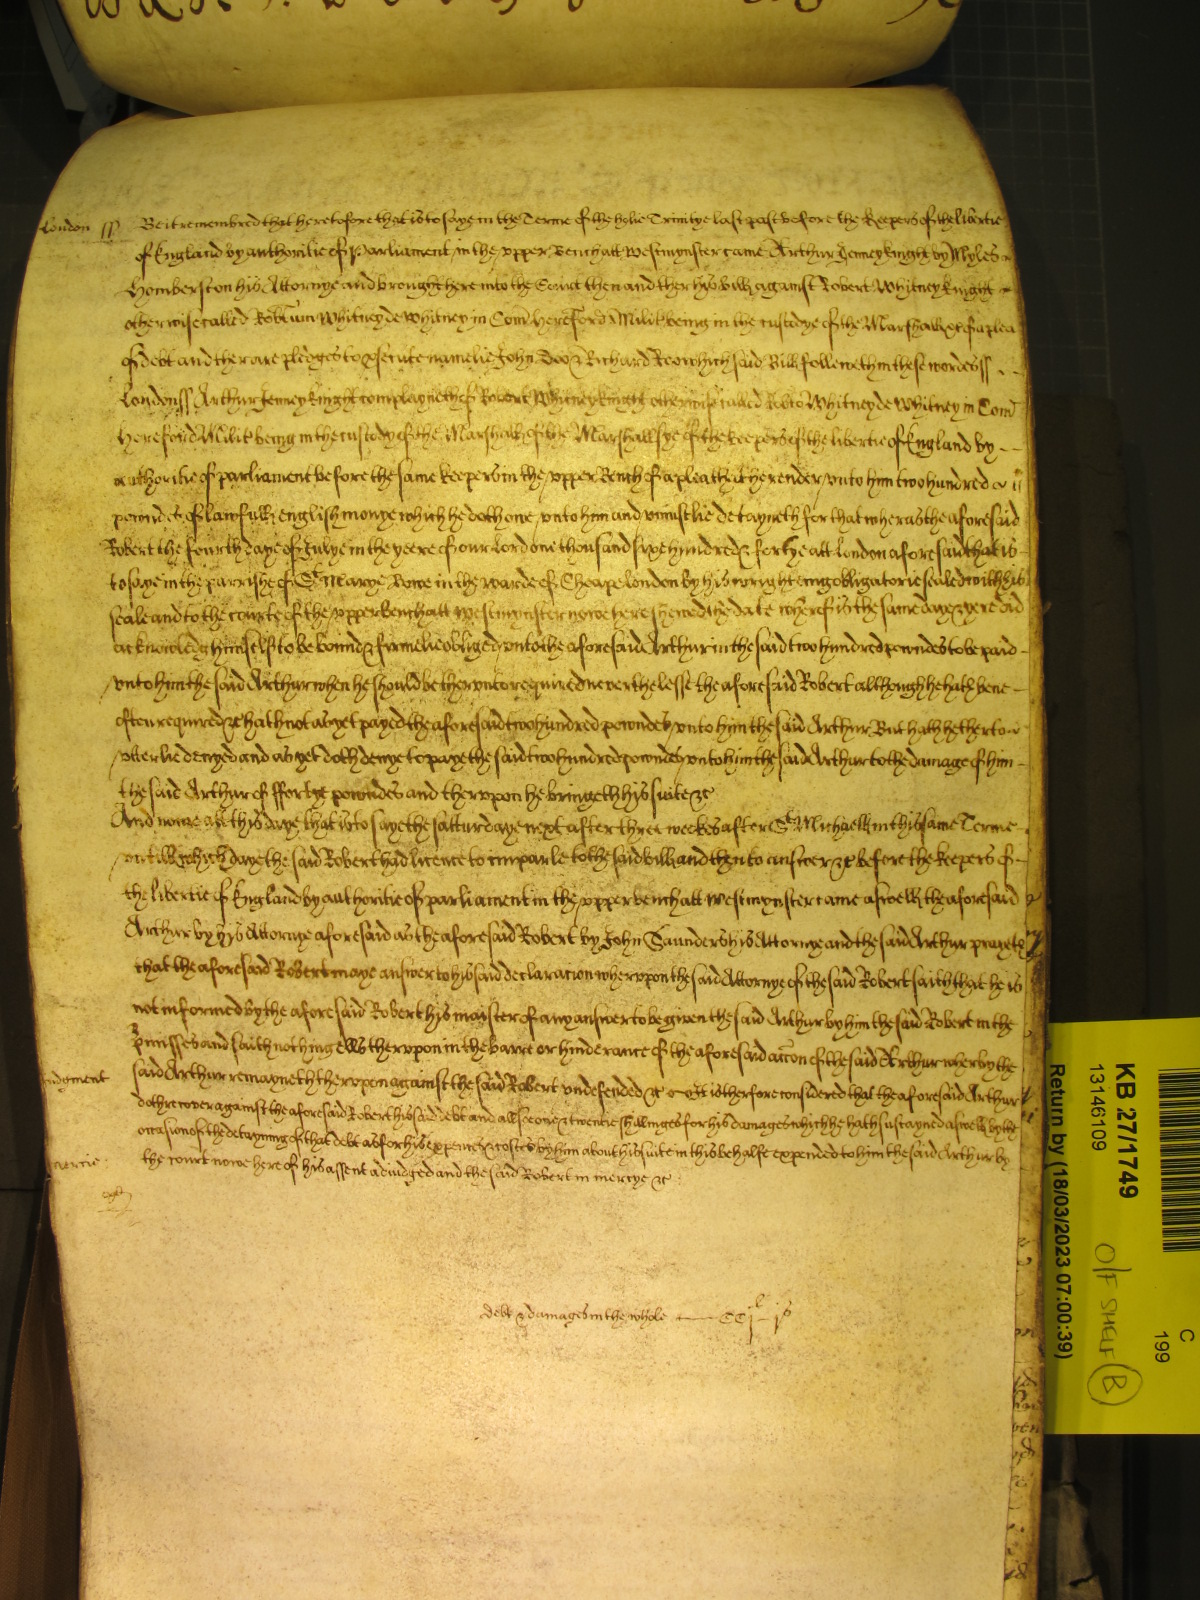 London ss Be it remembred that heretofore that is to saye in the Terme of the holie Trinitye last past before the Keepers of the libertie
of England by authoritie of Parliament in the upper Bench att Westmynster came Arthur Jenney knight by Myles
his Attornye and brought here into the Court then and ther his bill against Robert Whitney knight
otherwise called Robtum Whitney de Whitney in Com Hereford Milit being in the custodye of the Marshall &c of a plea
of debt and ther are pledges to psecute namelie John Doo & Richard Roo which said Bill followeth in these wordes ss
London ss Arthur Jenney knight complayneth of Robert Whitney knight otherwise called Robtū Whitney de Whitney in Com
Hereford Milit being in the custody of the Marshall of the Marshallsye of the keepers of the libertie of England by
authoritie of parliament before the same keepers in the upper Bench of a plea that he render unto him two hundred
powndes of lawfull english monye which he doth owe unto him and uniustlie detayneth for that wheras the aforesaid
Robert the fourth daye of Julye in the yeere of our Lord one thousand sixe hundred & fortye att London aforesaid that is
to saye in the parrishe of St Marye Bowe in the warde of Cheape London by his wrighting obligatorie sealed with his
seale and to the courte of the upper bench att Westmynster nowe here shewed the date wherof is the same daye & yere did
acknowledg himself to be bound & firmelie obliged unto the aforesaid Arthur in the said two hundred powndes to be paid
unto him the said Arthur when he should be therunto required neverthelesse the aforesaid Robert although he hath bene
often required &c hath not as yet payed the aforesaid two hundred powndes unto him the said Arthur But hath hetherto
utterlie denyed and as yet doth denye to paye the said two hundred powndes unto him the said Arthur to the damage of him
the said Arthur of ffortye powndes and therupon he bringeth his suite &c
And nowe att this daye that is to saye the satturdaye next after three weekes after St Michaell in this same Terme
untill which daye the said Robert had licence to imparle to the said bill and then to answer &c before the keepers of
the libertie of England by authoritie of parliament in the upper bench att Westmynster came aswell the aforesaid
Arthur by his Attornye aforesaid as the aforesaid Robert by John Saunders his Attornye and the said Arthur prayeth
that the aforesaid Robert maye answer to his said declaracion wherupon the said Attornye of the said Robert saith that he is
not informed by the aforesaid Robert his maister of any answer to be given the said Arthur by him the said Robert in the
pmisses and saith nothing ells therupon in the barre or hinderance of the aforesaid accon of the said Arthur wherby the
Judgment said Arthur remayneth therupon against the said Robert undefended &c It is therfore considered that the aforesaid Arthur
doth recover against the aforesaid Robert his said debt and allsoe one & twentie shillinges for his damages which he hath sustayned aswell by the
occasion of the detayning of that debt as for his expences & costes by him about his suite in this behalfe expended to him the said Arthur by
mercie the court nowe here of his assent adiudged and the said Robert in mercye &c
debt & damages in the whole CCjl js
KB 27/1749
13146109
Return by (18/03/2023 07:00:39)
O/F SHELF B
C
199